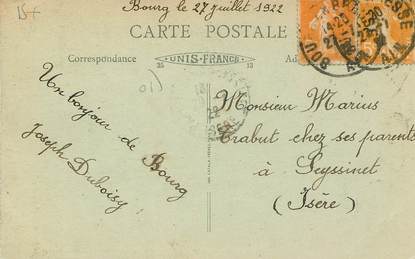 15+
Bourg le 27 juillet 1922
CARTE POSTALE
Correspondance
UNIS-FRANCE
25
13
Ad
Un bonjour de Bourg
Joseph Duboisy
Monsieur Marius
Trabut chez ses parents
à Seyssinet
(Isère)